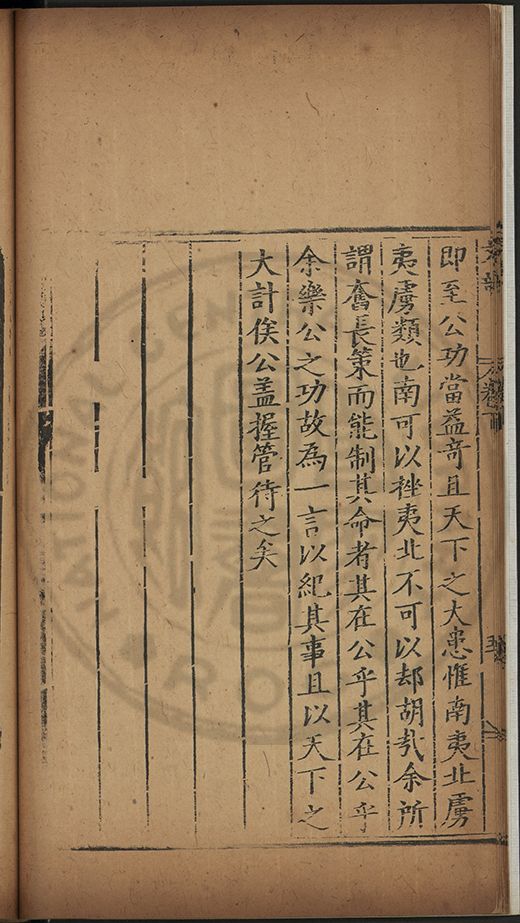 即至公功當益奇且天下之大患惟南夷北虜
夷虜類也南可以挫夷北不可以却胡㦲余所
謂奮長策而能制其命者其在公乎其在公乎
余樂公之功故為一言以紀其事且以天下之
大計俟公盖握管待之矣